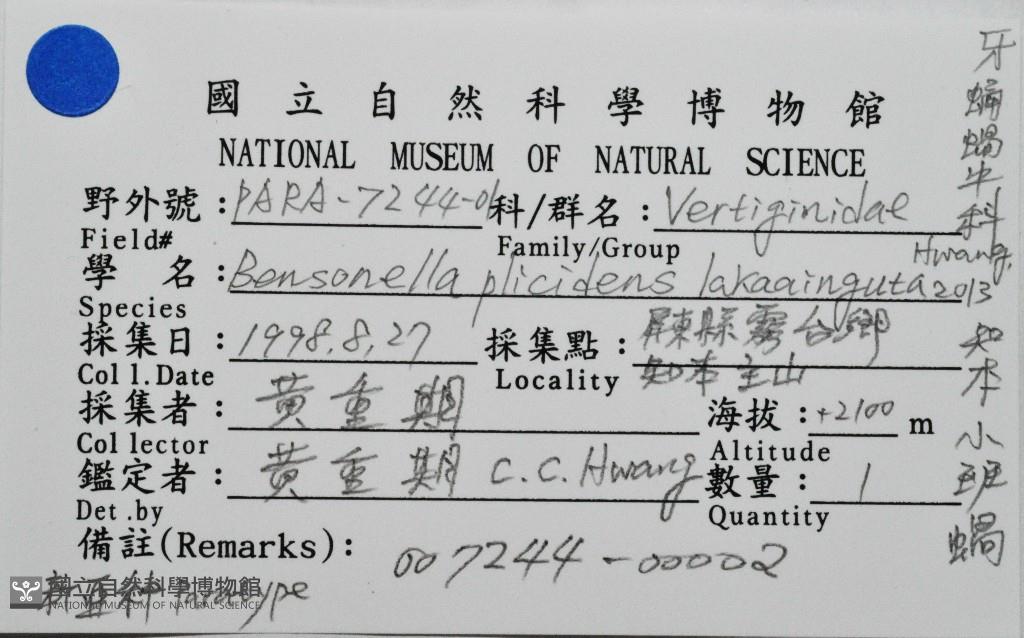 國立自然科學博物館
NATIONAL MUSEUM OF NATURAL SCIENCE
野外號：PARA-7244-01 科/群名：Vertiginidae
Field# Family/Group
學名：Bensonella plicidens lakaainguta Hwang, 2013
Species
採集日：1998.8.27 採集點：屏東縣霧台鄉
知本主山
Coll.Date Locality
採集者：黃重期 海拔：+2100 m
Collector Altitude
鑑定者：黃重期 C.C.Hwang 數量：1
Det.by Quantity
備註(Remarks)：007244-00002
新亞種 Paratype
國立自然科學博物館
NATIONAL MUSEUM OF NATURAL SCIENCE
牙蝸牛科
知本小班蝸